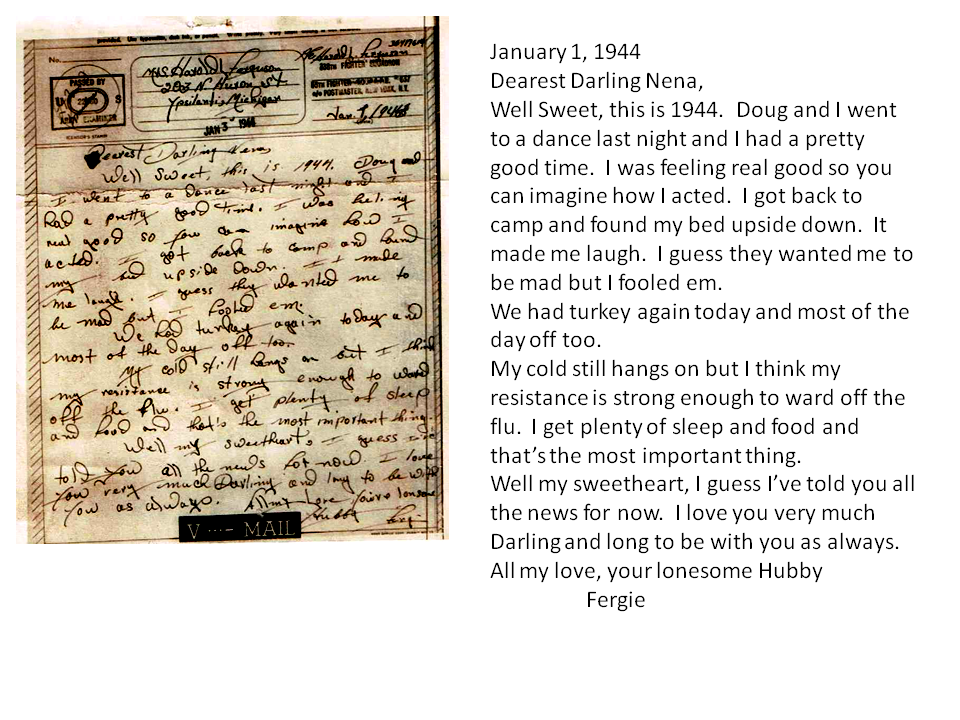 No.
PASSED BY
U S
ARMY EXAMINER
Mrs Harold Ferguson
203 N Huron St
Ypsilanti Michigan
JAN 3 1944
Harold L Ferguson
FIGHTER SQUADRON
c/o POSTMASTER, NEW YORK, N.Y.
Jan. 1, 1944
Dearest Darling Nena
Well Sweet, this is 1944. Doug and
I went to a dance last night and I
had a pretty good time. I was feeling
real good so you can imagine how I
acted. I got back to camp and found
my bed upside down. It made
me laugh. I guess they wanted me to
be mad but I fooled em.
We had turkey again today and
most of the day off too.
My cold still hangs on but I think
my resistance is strong enough to ward
off the flu. I get plenty of sleep
and food and that's the most important thing.
Well my sweetheart I guess I've
told you all the news for now. I love
you very much Darling and long to be with
you as always. All my Love your lonesome
Hubby Ferg
V···— MAIL
January 1, 1944
Dearest Darling Nena,
Well Sweet, this is 1944.  Doug and I went
to a dance last night and I had a pretty
good time.  I was feeling real good so you
can imagine how I acted.  I got back to
camp and found my bed upside down.  It
made me laugh.  I guess they wanted me to
be mad but I fooled em.
We had turkey again today and most of the
day off too.
My cold still hangs on but I think my
resistance is strong enough to ward off the
flu.  I get plenty of sleep and food and
that's the most important thing.
Well my sweetheart, I guess I've told you all
the news for now.  I love you very much
Darling and long to be with you as always.
All my love, your lonesome Hubby
Fergie